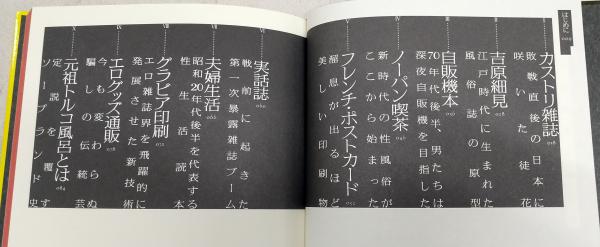 はじめに
I
カストリ雑誌
敗戦直後の日本に
咲いた徒花
II
吉原細見
江戸時代に生まれた
風俗誌の原型
III
自販機本
70年代後半、男たちは
深夜自販機を目指した
IV
ノーパン喫茶
新時代の性風俗が
ここから始まった
V
フレンチ・ポストカード
溜息が出るほど
美しい印刷物
VI
実話誌
戦前に起きた
第一次暴露雑誌ブーム
VII
夫婦生活
昭和20年代後半を代表する
性生活読本
VIII
グラビア印刷
エロ雑誌界を飛躍的に
発展させた新技術
IX
エログッズ通販
今も変わらぬ
騙しの伝統芸
X
元祖トルコ風呂とは 084
定説を覆す
ソープランド史